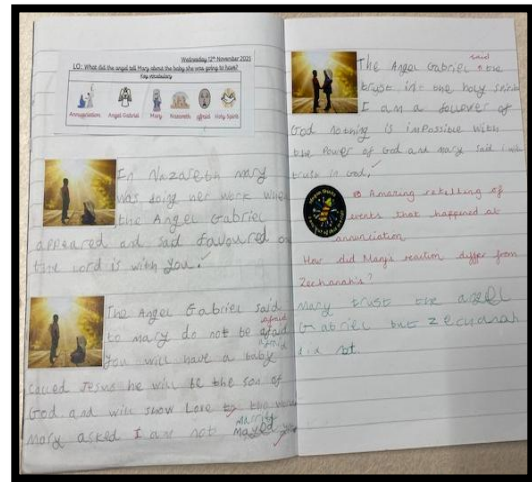 Wednesday 12th November 2025
LO: What did the angel tell Mary about the baby she was going to have?
Key vocabulary
Annunciation Angel Gabriel Mary Nazareth afraid Holy Spirit
In Nazareth mary
was doing her work when
the Angel Gabriel
appeared and said favoured o
the lord is with you.
The Angel Gabriel said
afraid
to mary do not be afaid
afraid
you will have a baby
called Jesus he will be the son of
God and will show Love to the
mary asked I am not
married
said
The Angel Gabriel the
trust in the holy
I am a follower of
God nothing is impossible with
the Power of God and mary said I will
trust in God.
Amazing retelling of
events that happened at
annunciation
How did Mary's reaction differ from
Zechariah's?
mary trust the angel
Gabriel but
did not